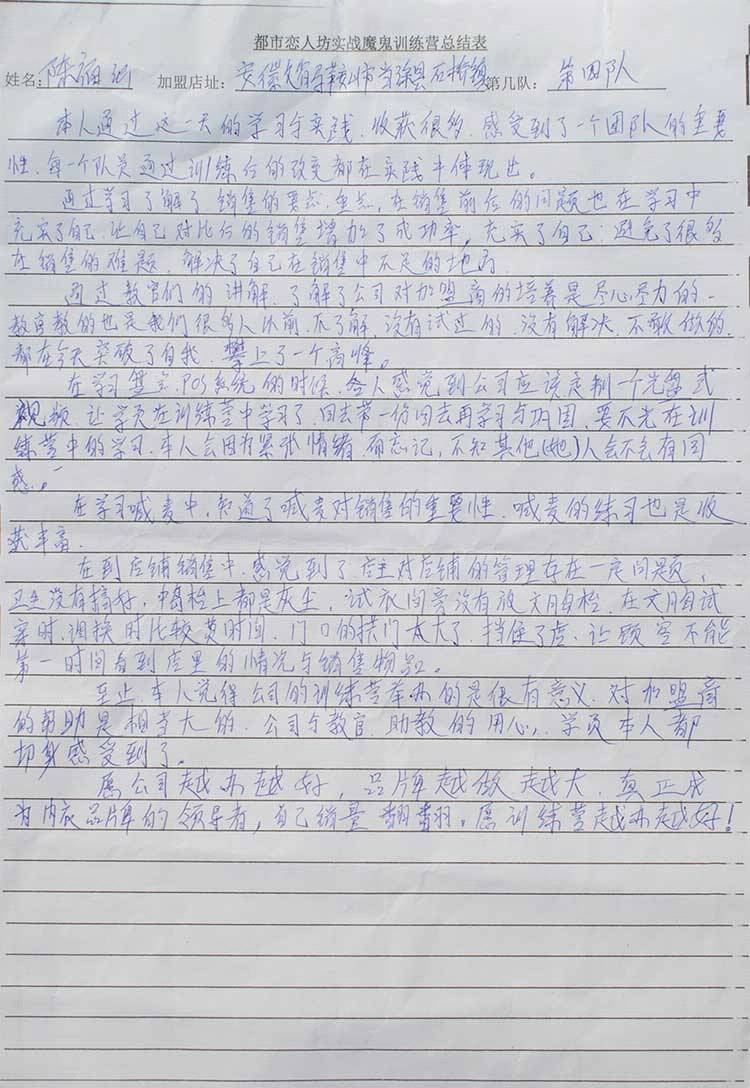 都市恋人坊实战魔鬼训练营总结表
姓名：陈 加盟店址：安徽省马鞍山市当涂县石桥镇 第几队：第四队
本人通过这一天的学习与实践．收获很多．感受到了一个团队的重要
性．每一个队员通过训练后的改变都在实践中体现出。
通过学习了解了销售的要点．重点，在销售前后的问题也在学习中
充实了自己．让自己对比后的销售增加了成功率，充实了自己．避免了很多
在销售的难题．解决了自己在销售中不足的地方．
通过教官们的讲解．了解了公司对加盟商的培养是尽心尽力的．
教官教的也是我们很多人以前．不了解．没有试过的．没有解决．不敢做的．
都在今天突破了自我．攀上了一个高峰。
在学习．POS系统的时候．本人感觉到公司应该定制一个光盘式
视频．让学员在训练营中学习了．回去带一份回去再学习与巩固．要不光在训
练营中的学习．本人会因为紧张情绪．而忘记，不知其他(她)人会不会有同
感。
在学习喊麦中．知道了喊麦对销售的重要性．喊麦的练习也是收
获丰富．
在到店铺销售中．感觉到了店主对店铺的管理存在一定问题，
卫生没有搞好，中岛柜上都是灰尘，试衣间旁没有放文胸柜．在文胸试
穿时．调换时比较费时间．门口的拱门太大了．挡住了店．让顾客不能
第一时间看到店里的情况与销售物品。
至此本人觉得公司的训练营举办的是很有意义．对加盟商
的帮助是相当大的．公司与教官．助教的用心，学员本人都
切身感受到了。
愿公司越办越好，品牌越做越大．真正成
为内衣品牌的领导者，自己销量翻翻。愿训练营越办越好！